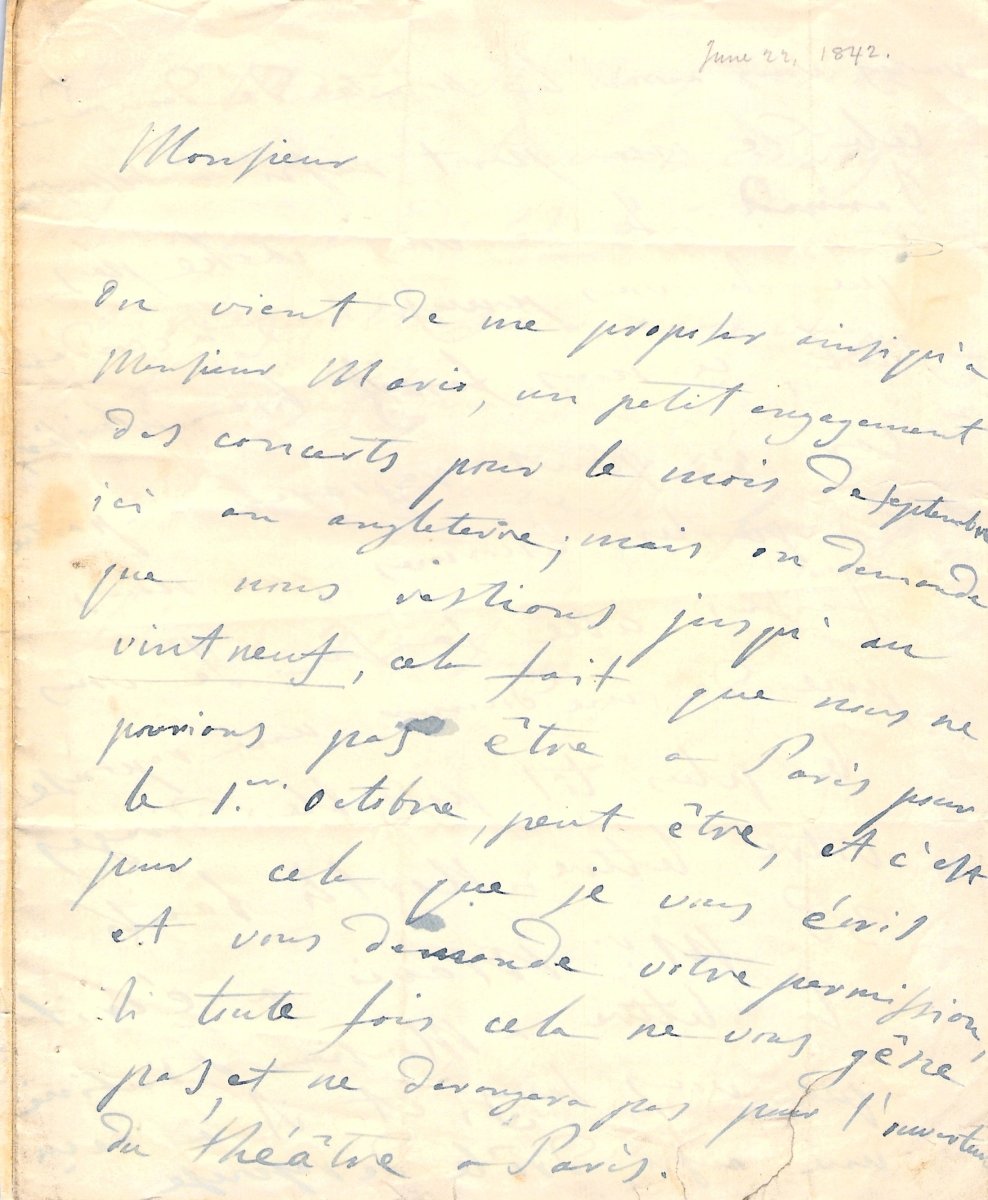 June 22, 1842.
Monsieur
On vient de me proposer ainsiqu'a
Monsieur Mario, un petit engagement
des concerts pour le mois de septembre
ici en angleterre; mais on demande
que nous restions jusqu'au
vint neuf, cela fait que nous ne
pourions pas être a Paris pour
le 1.er Octobre, peut être, et c'est
pour cela que je vous écris
et vous demande votre permission,
si toute fois cela ne vous gêne
pas, et ne derangera pas pour l'ouverture
du théâtre a Paris.